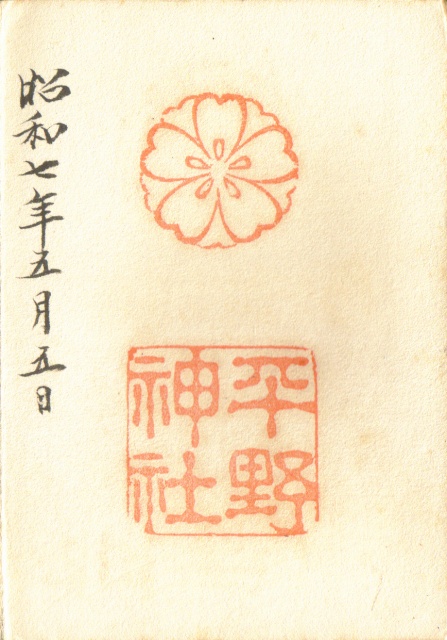 平野
神社
昭和七年五月五日